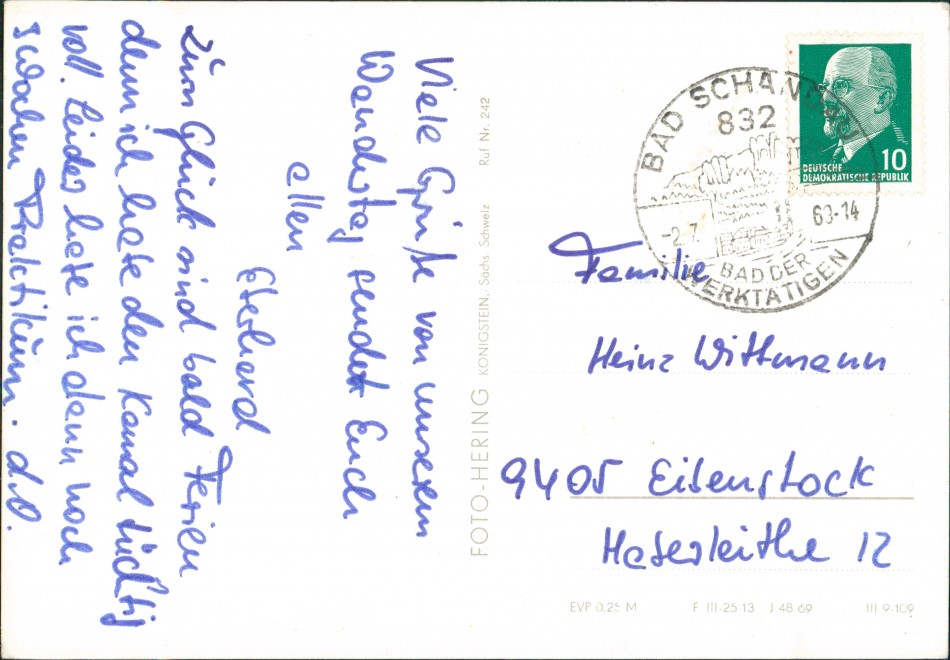 Viele Grüße von unserem
Wandertag sendet Euch
allen
Eberhard
Zum Glück sind bald Ferien
denn ich habe den Kanal tüchtig
voll. Leider habe ich dann noch
3 Wochen Praktikum. d.O.
FOTO-HERING KÖNIGSTEIN, Sächs. Schweiz Ruf Nr. 242
BAD SCHANDAU
832
-2.7. 69-14
BAD DER
WERKTÄTIGEN
DEUTSCHE 10
DEMOKRATISCHE REPUBLIK
Familie
Heinz Wittmann
9405 Eibenstock
Haberleithe 12
EVP 0.25 M F III-25 13 J 48 69 III 9-109